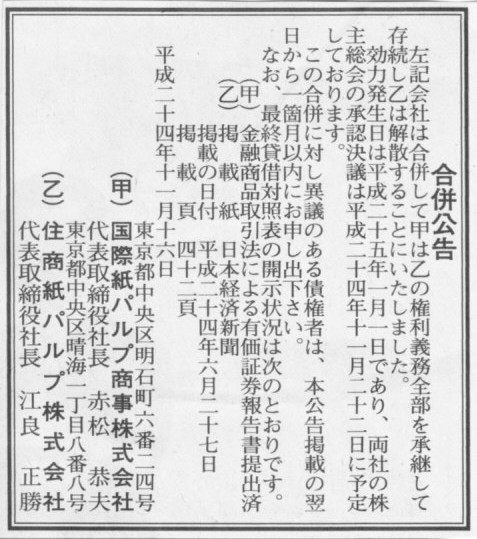 合併公告
左記会社は合併して甲は乙の権利義務全部を承継して
存続し乙は解散することにいたしました。
効力発生日は平成二十五年一月一日であり、両社の株
主総会の承認決議は平成二十四年十一月二十二日に予定
しております。
この合併に対し異議のある債権者は、本公告掲載の翌
日から一箇月以内にお申し出下さい。
なお、最終貸借対照表の開示状況は次のとおりです。
（甲）金融商品取引法による有価証券報告書提出済
（乙）掲載紙 日本経済新聞
掲載の日付 平成二十四年六月二十七日
掲載頁 四十二頁
平成二十四年十一月十六日
東京都中央区明石町六番二四号
（甲）国際紙パルプ商事株式会社
代表取締役社長 赤松 恭夫
東京都中央区晴海一丁目八番八号
（乙）住商紙パルプ株式会社
代表取締役社長 江良 正勝